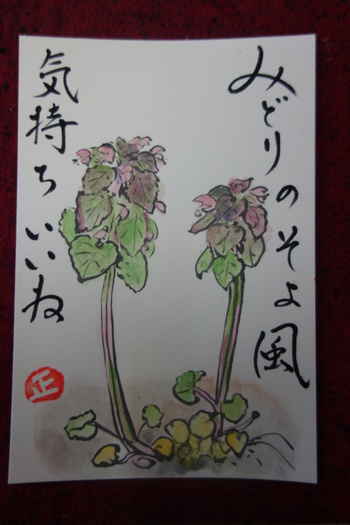 みどりのそよ風
気持ちいいね
正